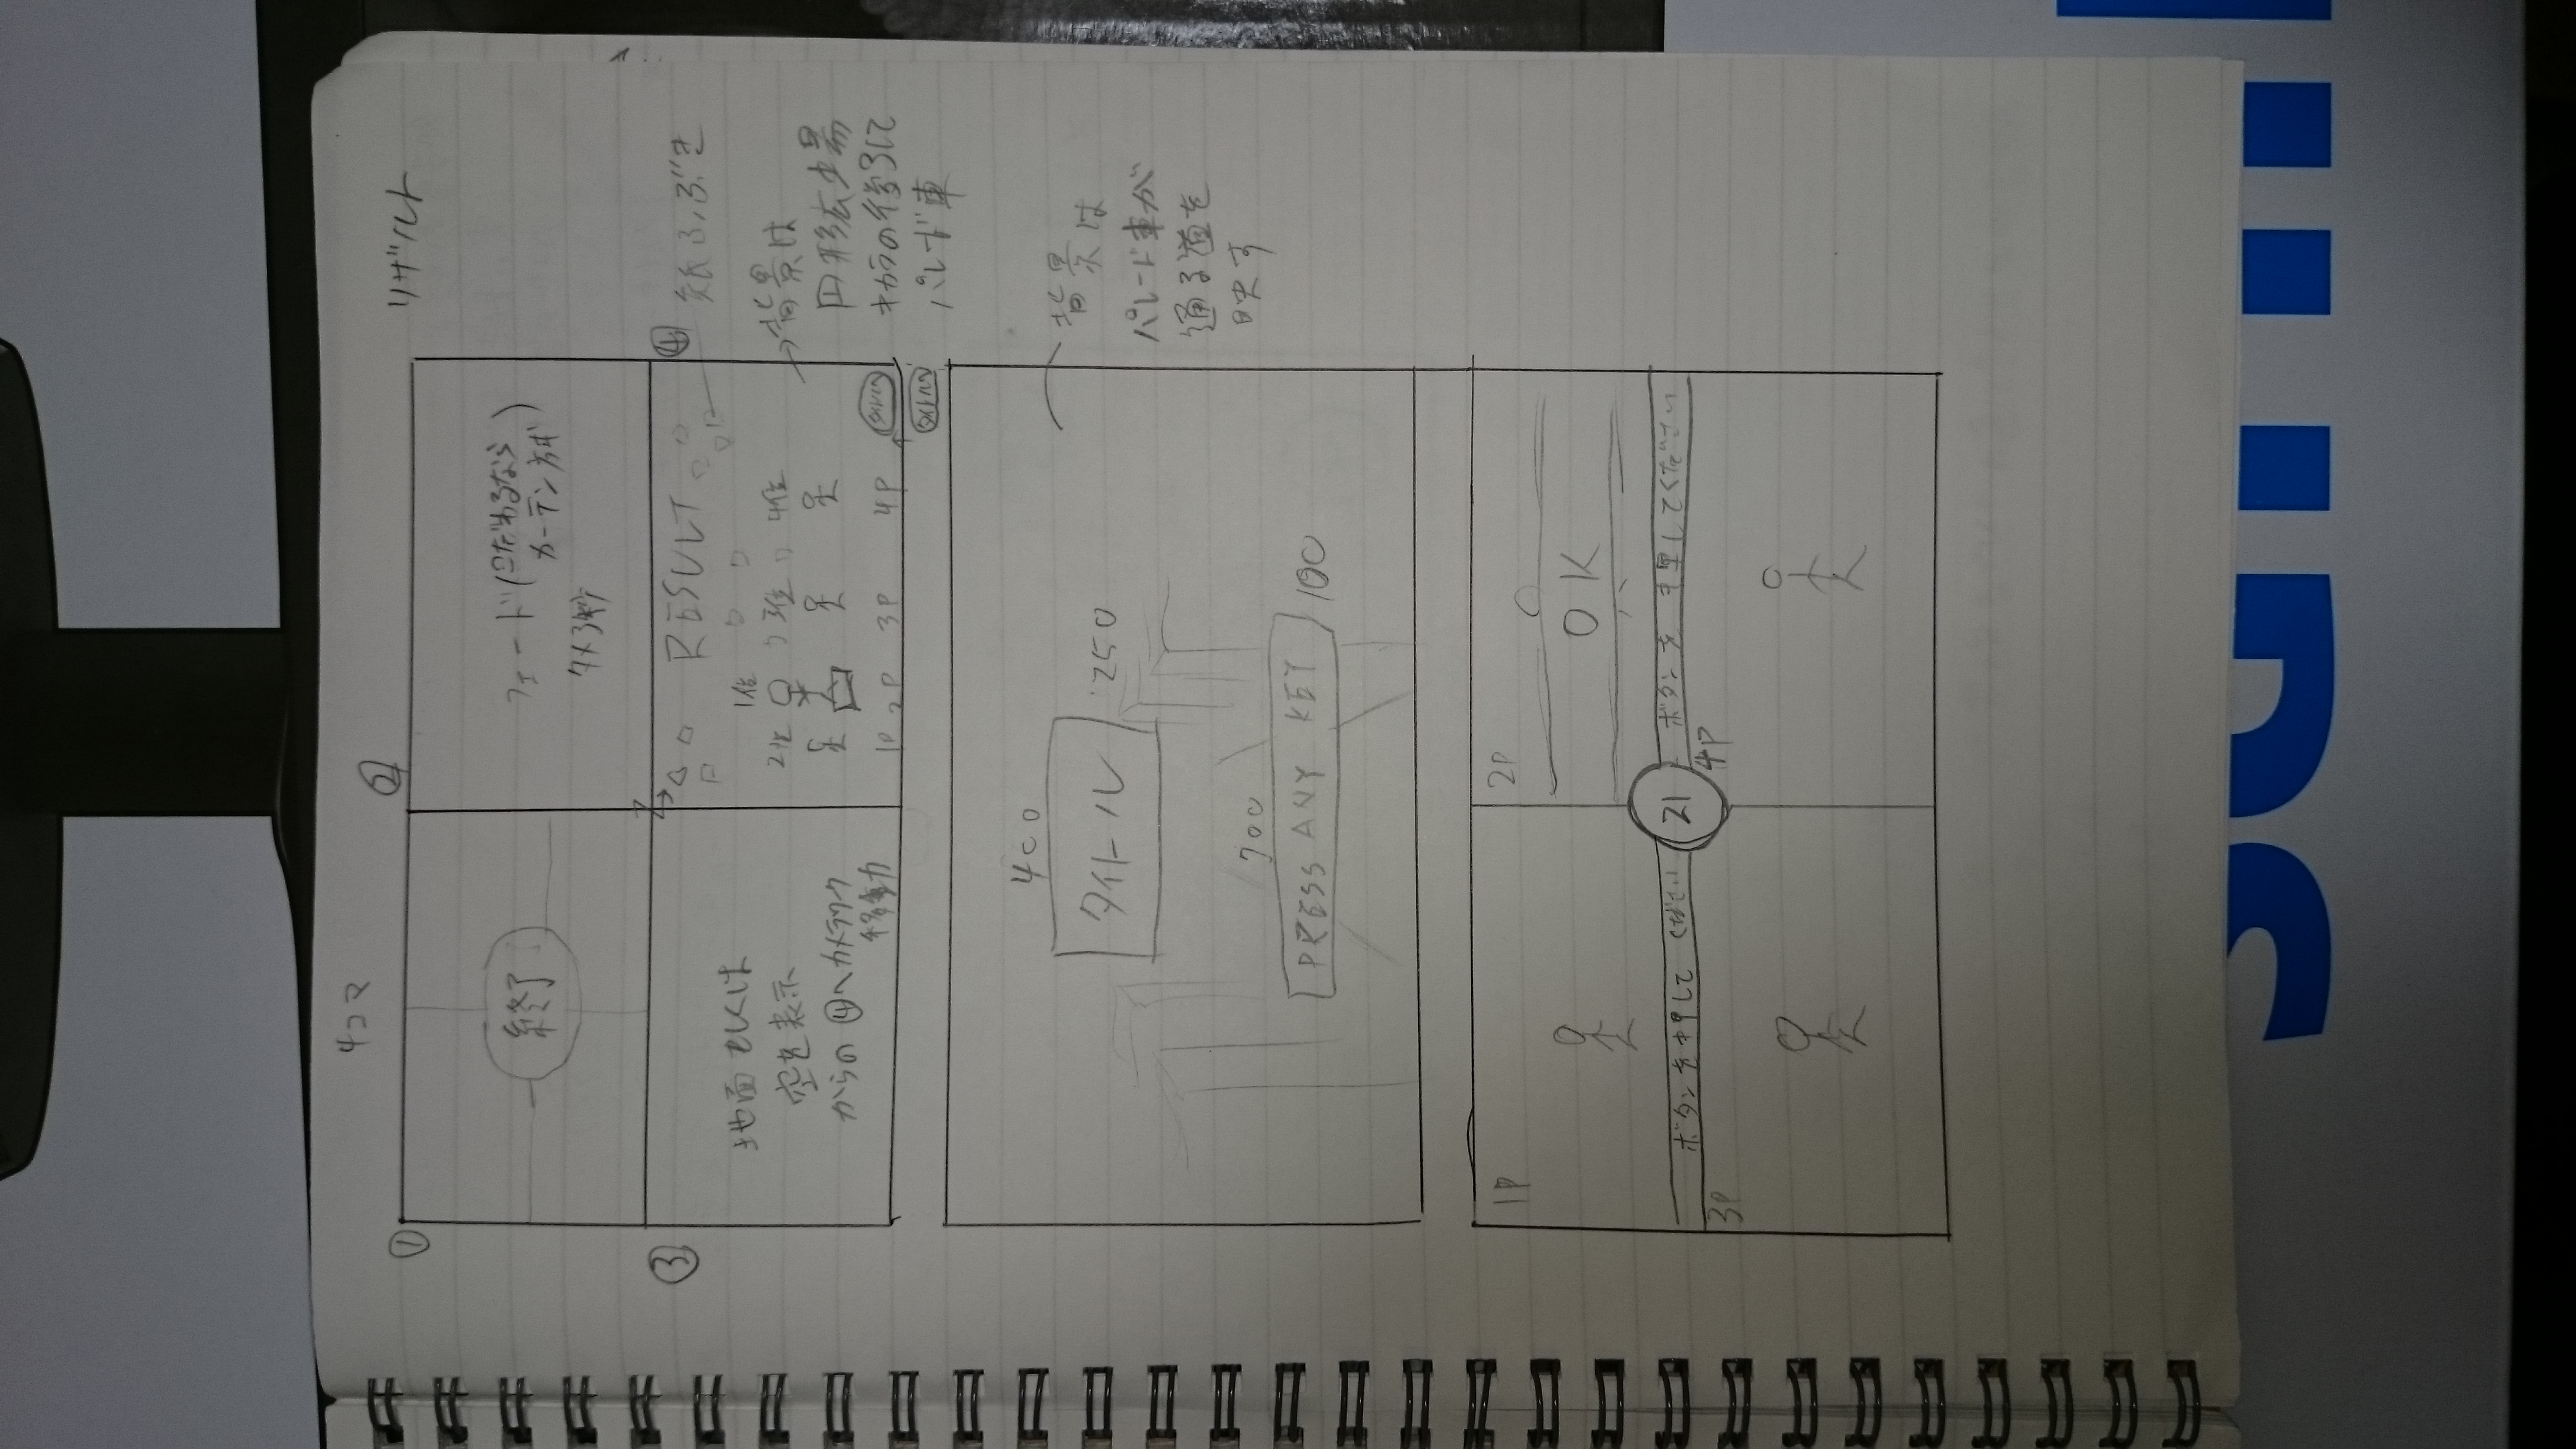 4コマ
リザルト
①
②
終了
フェード(こだわるなら
カーテン方式)
タメ3秒
③
地面もしくは
空を表示
からの④へカメラワーク
移動
④
RESULT
1位
2位
3位
4位
1P 2P 3P 4P
タイトルへ
タイトルへ
紙ふぶき
背景は
円形広場
キャラの後ろに
パレード車
400
タイトル
250
700
PRESS ANY KEY
100
背景は
パレード車が
通る道を
映す
1P
2P
OK
ボタンを押してください
21
ボタンを押してください
3P
4P